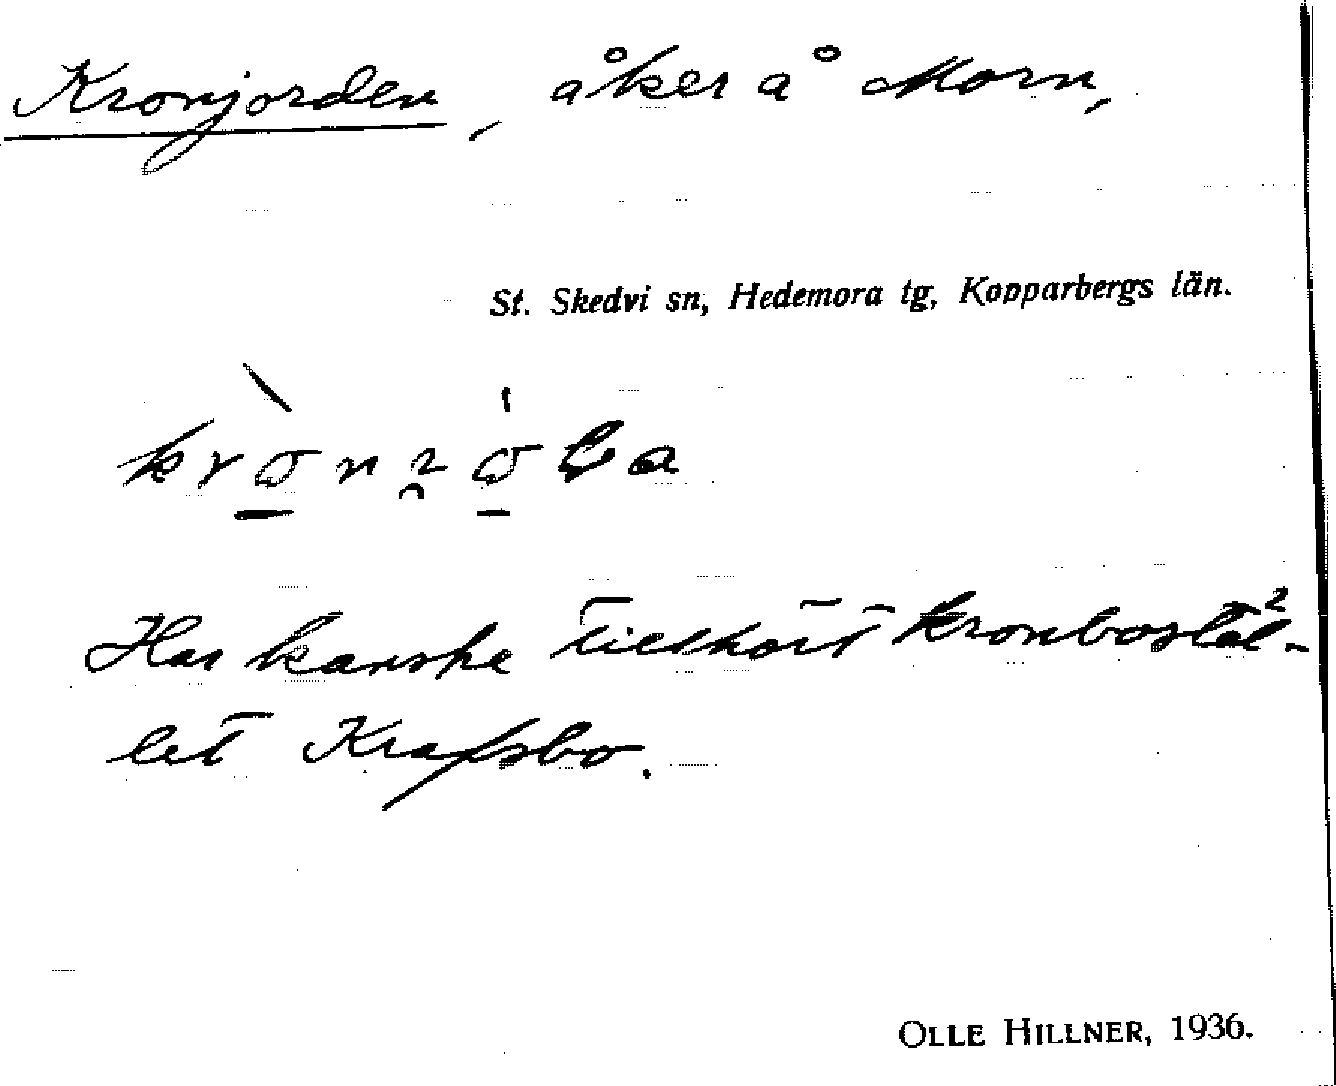 Kronjorden, åker å Morn,
St. Skedvi sn, Hedemora tg, Kopparbergs län.
Har kanske tillhört kronboställ-
let Krafsbo.
OLLE HILLNER, 1936.